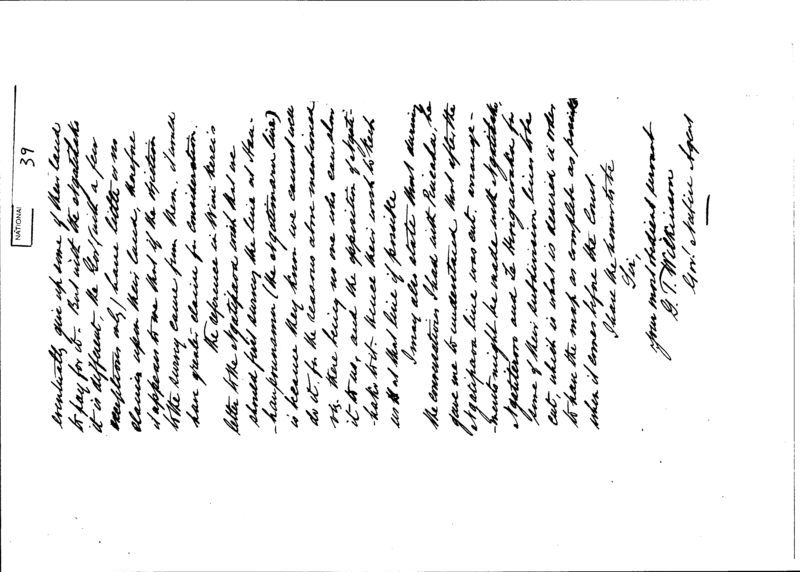 NATIONAL
39
eventually give up some of their land
to pay for it. But with the Ngatitekete
it is different, the Govt (with a few
exceptions only) have little or no
claim upon their land, therefore
it appears to me that if the objection
to the survey came from them it would
have greater claim for consideration.
The reference in Wini Kerei's
letter to the wish that we
should first survey the line at
(the line)
is because they know we cannot well
do it for the reasons above mentioned
viz. there being no one who can show
it to us, and the opposition of
to it. Hence their wish to keep
us at that line if possible
I may also state that during
the conversation I had with he
gave me to understand that after the
line was cut, arrange-
-ments might be made with
and Te for
some of their subdivision lines to be
cut, which is what is desired in order
to have the map as complete as possible
when it comes before the Court.
I have the honor to be
Sir,
your most obedient servant
S. T. Wilkinson
Govt Native Agent